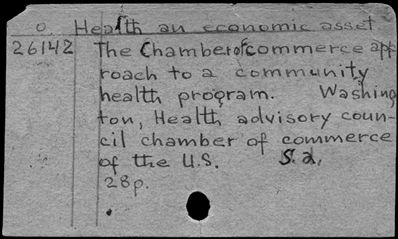 o. Health an economic asset
26142 The Chamber of commerce app
roach to a community
health program. Washing
ton, Health advisory coun-
cil chamber of commerce
of the U.S. S.d.
28p.